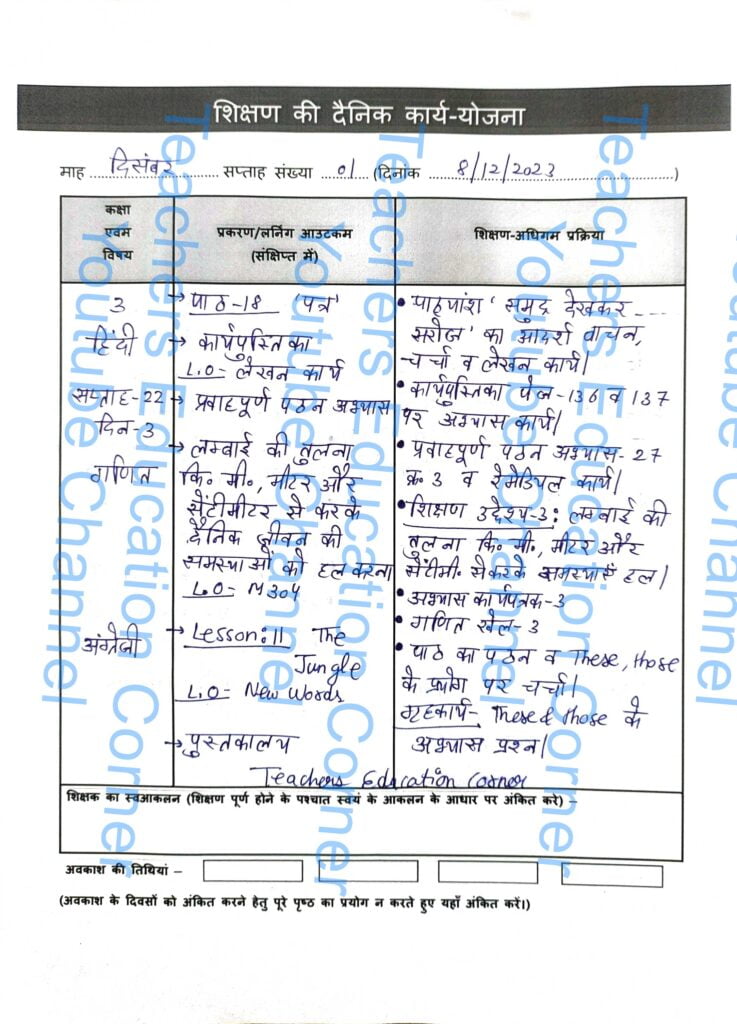 शिक्षण की दैनिक कार्य-योजना
माह दिसंबर सप्ताह संख्या 01 (दिनांक 8/12/2023)
कक्षा
एवम
विषय
प्रकरण/लर्निंग आउटकम
(संक्षिप्त में)
शिक्षण-अधिगम प्रक्रिया
3
हिंदी
सप्ताह-22
दिन-3
→ पाठ-18 'पत्र'
→ कार्यपुस्तिका
L.O- लेखन कार्य
→ प्रवाहपूर्ण पठन अभ्यास
• पाठ्यांश 'समुद्र देखकर ---
सरोज' का आदर्श वाचन,
चर्चा व लेखन कार्य।
• कार्यपुस्तिका पेज-136 व 137
पर अभ्यास कार्य।
• प्रवाहपूर्ण पठन अभ्यास-27
क्र. 3 व रेमेडियल कार्य।
गणित
→ लम्बाई की तुलना
कि. मी., मीटर और
सेंटीमीटर से करके
दैनिक जीवन की
समस्याओं को हल करना
L.O- M304
• शिक्षण उद्देश्य-3: लम्बाई की
तुलना कि. मी., मीटर और
सेंटीमी. से करके समस्याएँ हल।
• अभ्यास कार्यपत्रक-3
• गणित खेल-3
अंग्रेजी
→ Lesson:11 The
Jungle
L.O- New Words
→ पुस्तकालय
• पाठ का पठन व These, those
के प्रयोग पर चर्चा।
गृहकार्य- These & those के
अभ्यास प्रश्न।
Teachers Education Corner
शिक्षक का स्वआकलन (शिक्षण पूर्ण होने के पश्चात स्वयं के आकलन के आधार पर अंकित करे) –
अवकाश की तिथियां –
(अवकाश के दिवसों को अंकित करने हेतु पूरे पृष्ठ का प्रयोग न करते हुए यहाँ अंकित करें।)
Teachers Education Corner
Youtube Channel
Teachers Education Corner
Youtube Channel
Teachers Education Corner
Youtube Channel